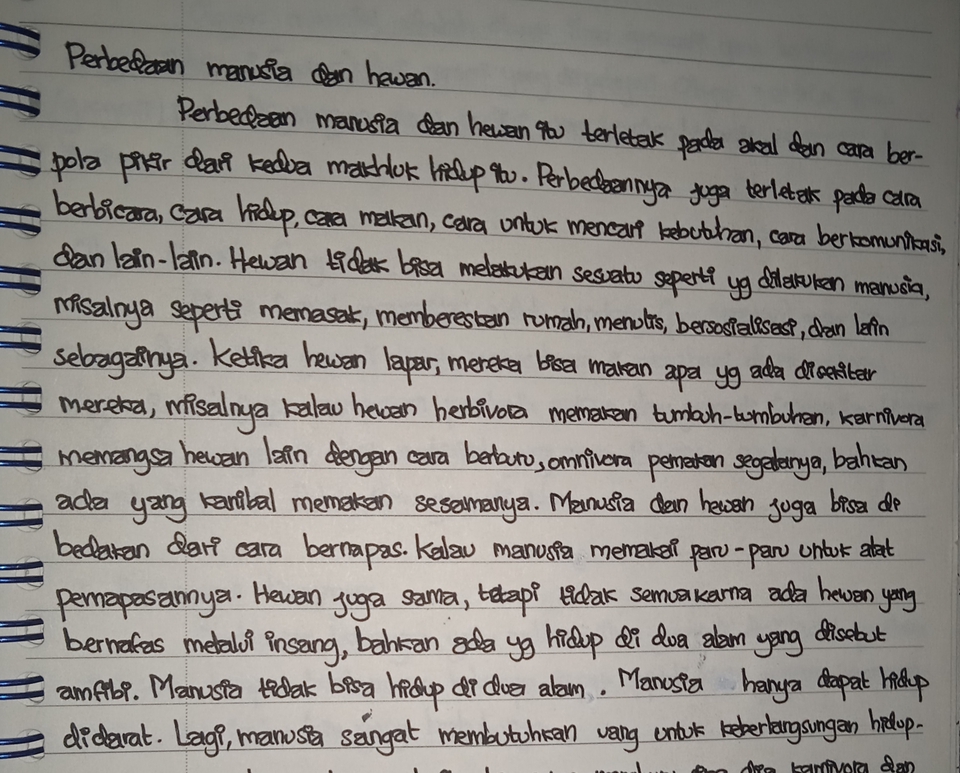 Perbedaan manusia dan hewan.
Perbedaan manusia dan hewan itu terletak pada akal dan cara ber-
pola pikir dari kedua makhluk hidup itu. Perbedaannya juga terletak pada cara
berbicara, cara hidup, cara makan, cara untuk mencari kebutuhan, cara berkomunikasi,
dan lain-lain. Hewan tidak bisa melakukan sesuatu seperti yg dilakukan manusia,
misalnya seperti memasak, membereskan rumah, menulis, bersosialisasi, dan lain
sebagainya. Ketika hewan lapar, mereka bisa makan apa yg ada disekitar
mereka, misalnya kalau hewan herbivora memakan tumbuh-tumbuhan, karnivora
memangsa hewan lain dengan cara berburu, omnivora pemakan segalanya, bahkan
ada yang kanibal memakan sesamanya. Manusia dan hewan juga bisa di
bedakan dari cara bernapas. Kalau manusia memakai paru-paru untuk alat
pernapasannya. Hewan juga sama, tetapi tidak semua karna ada hewan yang
bernafas melalui insang, bahkan ada yg hidup di dua alam yang disebut
amfibi. Manusia tidak bisa hidup di dua alam. Manusia hanya dapat hidup
didarat. Lagi, manusia sangat membutuhkan uang untuk keberlangsungan hidup-
karnivora dan